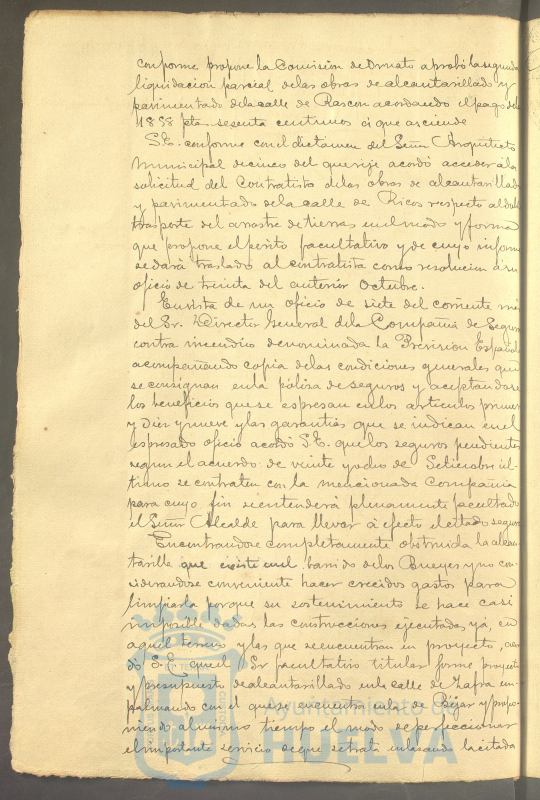 conforme propone la Comisión de Ornato aprobó la segunda
liquidacion parcial de las obras de alcantarillado y
pavimentado de la calle de Rascon acordando el pago de las
1858 ptas sesenta centimos a que asciende
S.E. conforme con el dictamen del Señor Arquitecto
Municipal de cinco del que rije acordó acceder a la
solicitud del Contratista de las obras de alcantarillado
y pavimentado de la calle de Ricos respecto al
trasporte del arrastre de tierras en el modo y forma
que propone el perito facultativo y de cuyo informe
se dará traslado al contratista como resolucion a su
oficio de treinta del anterior Octubre.
En vista de un oficio de siete del corriente mes
del Sr. Director General de la Compañia de Seguros
contra incendios denominada la Prevision Española
acompañando copia de las condiciones generales que
se consignan en la póliza de seguros y aceptandose
los beneficios que se espresan en los articulos primero
y diez y nueve y las garantias que se indican en el
espresado oficio acordó S.E. que los seguros pendientes
segun el acuerdo de veinte y ocho de Setiembre úl-
timo se contraten con la mencionada Compañia
para cuyo fin se entenderá plenamente facultado
el Señor Alcalde para llevar á efecto el citado seguro
Encontrandose completamente obstruida la alcan-
tarilla que existe en el barrido de los Bueyes y no con-
siderandose conveniente hacer crecidos gastos para
limpiarla porque su sostenimiento se hace casi
imposible dadas las construcciones ejecutadas ya, en
aquel terreno y las que se encuentran en proyecto, acor-
dó S.E. que el Sr facultativo titular forme proyecto
y presupuesto de alcantarillado en la calle de Zafra em-
palmando con el que se encuentra en la de Béjar y propo-
niendo al mismo tiempo el modo de perfeccionar
el importante servicio de que se trata enlasando la citada
Ayuntamiento de
HUELVA